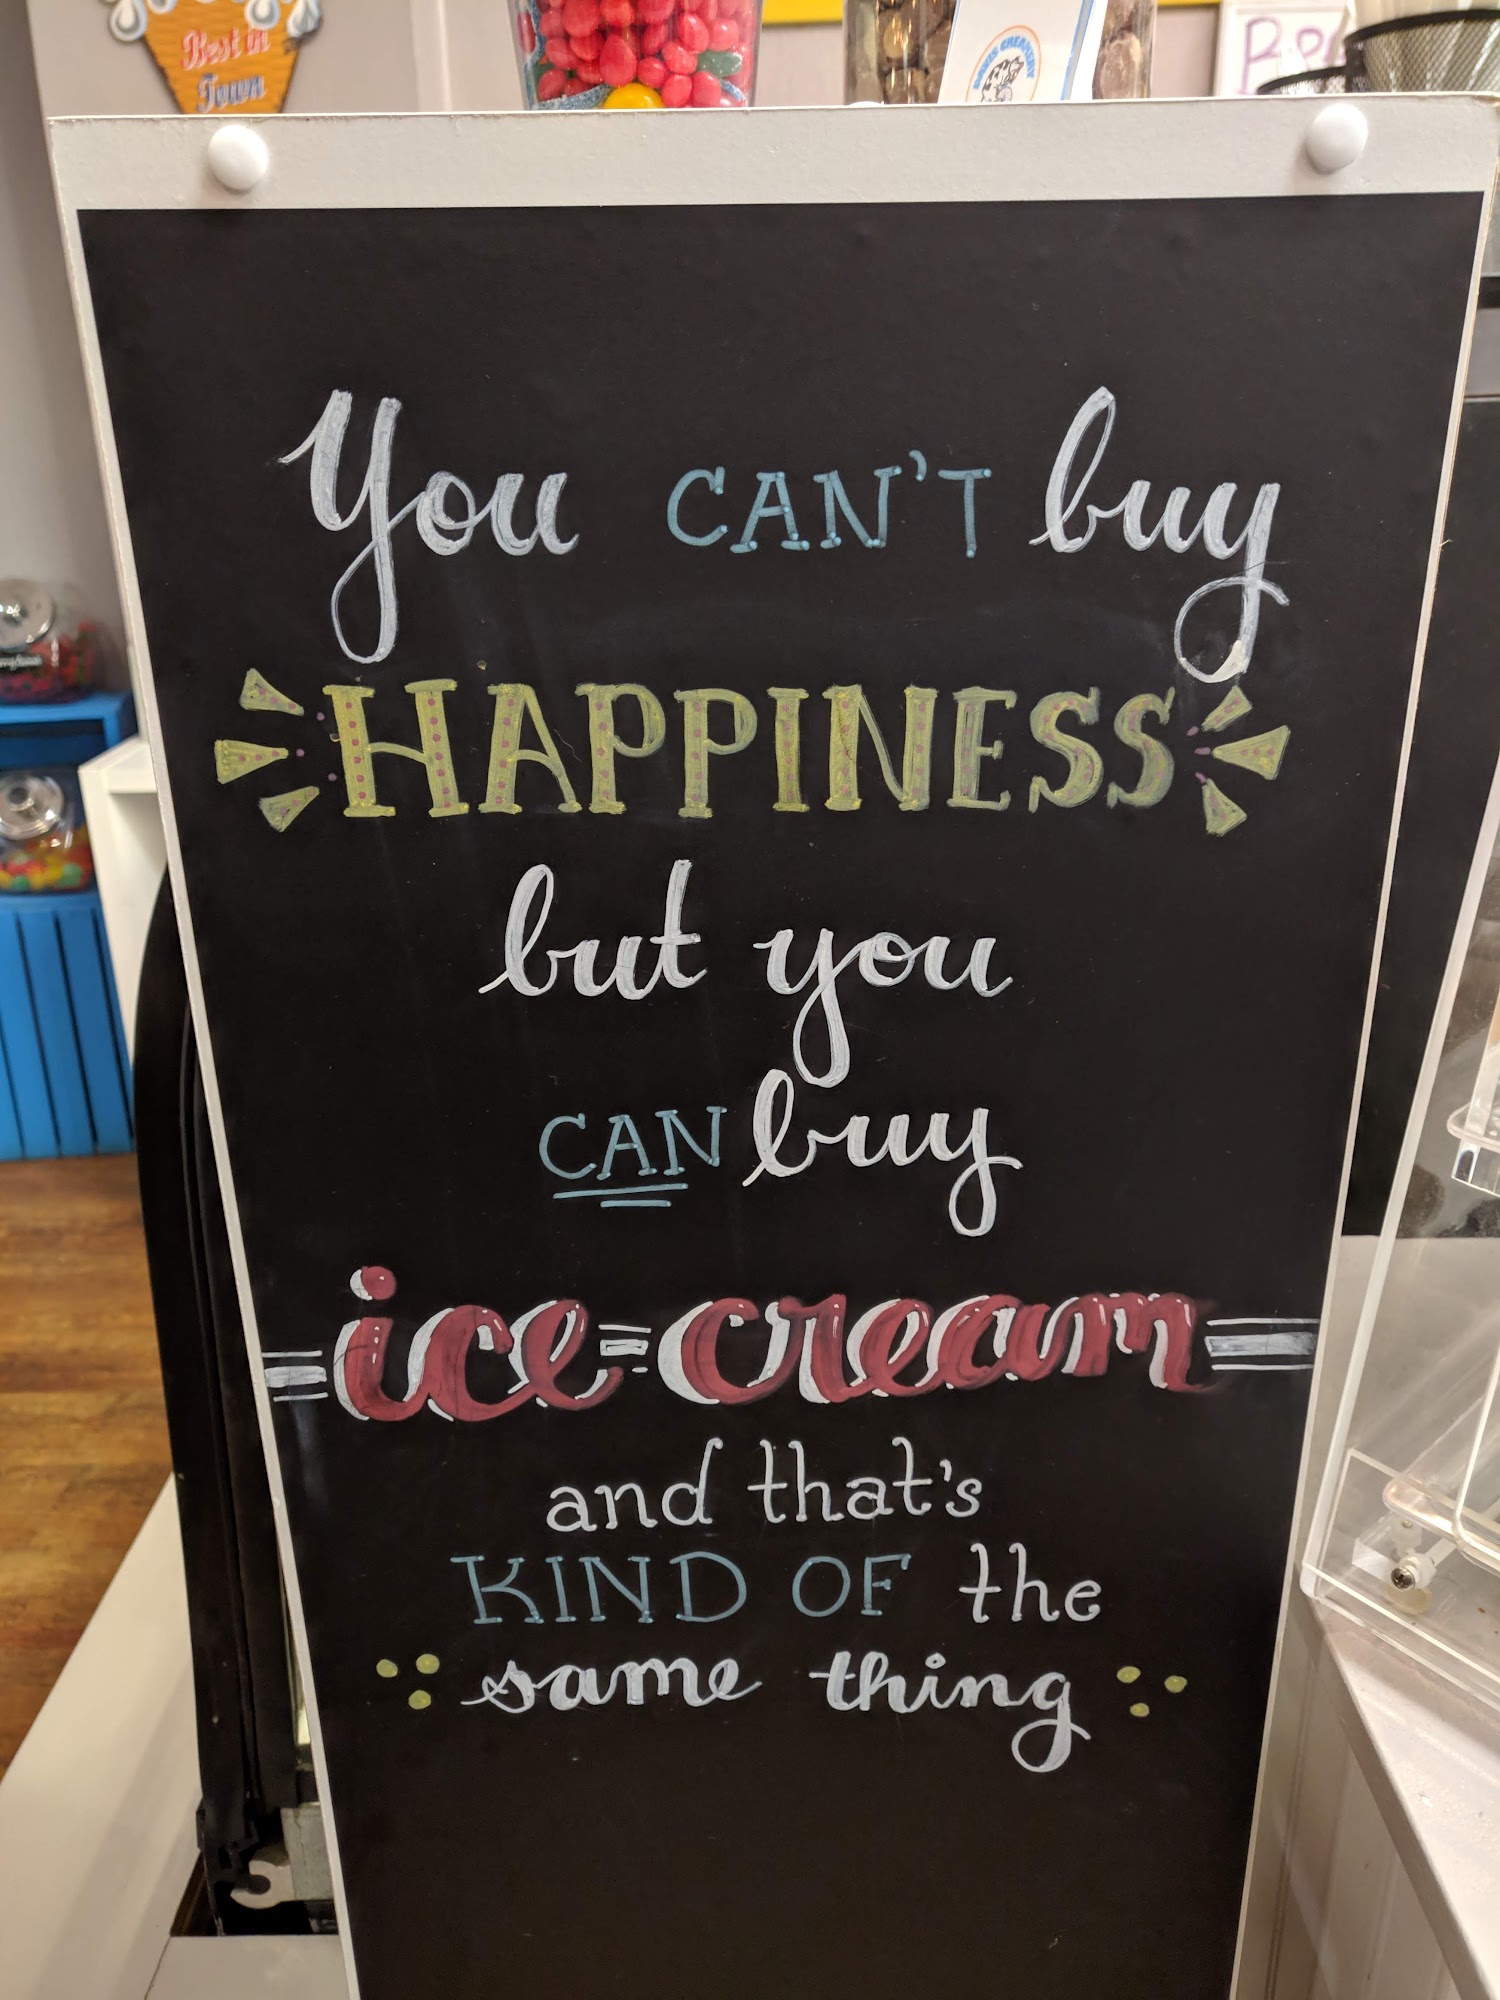 Best in
Town
DAVIS CREAMERY
You CAN'T buy
HAPPINESS
but you
CAN buy
ice cream
and that's
KIND OF the
same thing